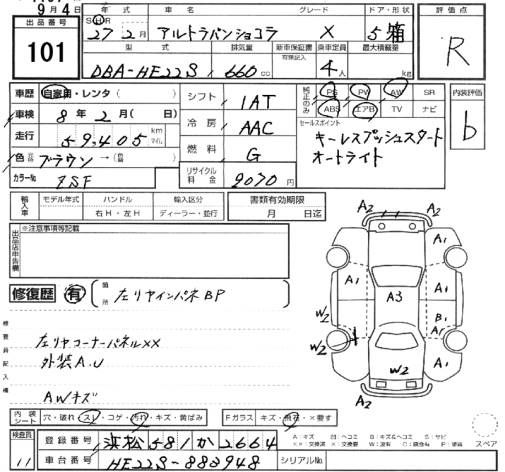 9月4日
出品番号
101
年式
車名
グレード
ドア・形状
S H R 27 2月
アルトラパンショコラ
X
5 箱
型式
排気量
新車保証書
有無記入
乗車定員
最大積載量
DBA-HE22S
660cc
4人
kg
評価点
R
内装評価
b
車歴 自家用・レンタ ( )
車検 8年 2月 ( 日)
走行 59,405 km マイル
色 ブラウン → (色 )
カラーNo. ZSF
シフト 1AT
冷房 AAC
燃料 G
リサイクル料金 9070円
純正のみ
PS PW AW SR
ABS エアB TV ナビ
セールスポイント
キーレスプッシュスタート
オートライト
輸入車
モデル年式
ハンドル
右H・左H
輸入区分
ディーラー・並行
書類有効期限
月 日迄
出品店申告欄
※注意事項等記載
修復歴 有
箇所
左リヤインパネBP
検査員記入欄
左リヤコーナーパネルXX
外装A.U
AWキズ
A2 A2
A1 A1
A1 A3 A1
B1
W2 A1
W2
W2
A2 A2
内装シート
穴・破れ・スレ・コゲ・汚れ・キズ・黄ばみ
Fガラス キズ・飛石・X要す
検査員
11
登録番号 浜松 581 か 2664
車台番号 HE22S-883948
シリアルNo.
A:キズ U:ヘコミ B:キズ&ヘコミ S:サビ
XX:交換済 X:交換要 W:波 C:腐食有 P:塗装
スペア